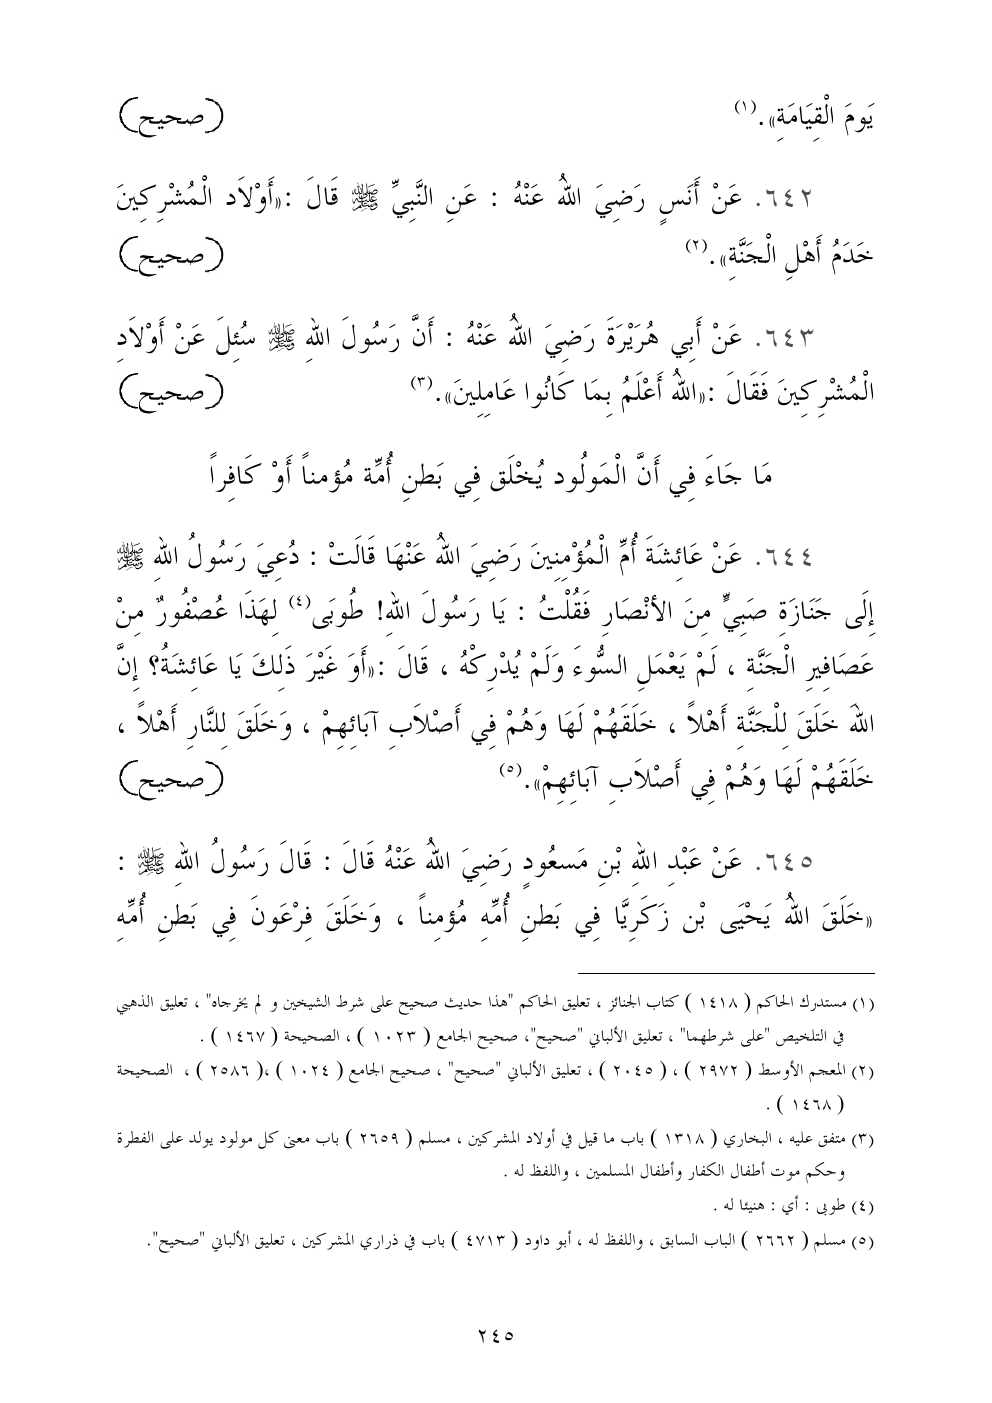 يَومَ الْقِيَامَةِ». (١) (صحيح)
٦٤٢. عَنْ أَنَسٍ رَضِيَ اللهُ عَنْهُ : عَنِ النَّبِيِّ ﷺ قَالَ :«أَوْلَاد الْمُشْرِكِينَ
خَدَمُ أَهْلِ الْجَنَّةِ». (٢) (صحيح)
٦٤٣. عَنْ أَبِي هُرَيْرَةَ رَضِيَ اللهُ عَنْهُ : أَنَّ رَسُولَ اللهِ ﷺ سُئِلَ عَنْ أَوْلَادِ
الْمُشْرِكِينَ فَقَالَ :«اللهُ أَعْلَمُ بِمَا كَانُوا عَامِلِينَ». (٣) (صحيح)
مَا جَاءَ فِي أَنَّ الْمَولُود يُخْلَق فِي بَطنِ أُمِّة مُؤمناً أَوْ كَافِراً
٦٤٤. عَنْ عَائِشَةَ أُمِّ الْمُؤْمِنِينَ رَضِيَ اللهُ عَنْهَا قَالَتْ : دُعِيَ رَسُولُ اللهِ ﷺ
إِلَى جَنَازَةِ صَبِيٍّ مِنَ الأنْصَارِ فَقُلْتُ : يَا رَسُولَ اللهِ! طُوبَى(٤) لِهَذَا عُصْفُورٌ مِنْ
عَصَافِيرِ الْجَنَّةِ ، لَمْ يَعْمَلِ السُّوءَ وَلَمْ يُدْرِكْهُ ، قَالَ :«أَوَ غَيْرَ ذَلِكَ يَا عَائِشَةُ؟ إِنَّ
اللهَ خَلَقَ لِلْجَنَّةِ أَهْلاً ، خَلَقَهُمْ لَهَا وَهُمْ فِي أَصْلاَبِ آبَائِهِمْ ، وَخَلَقَ لِلنَّارِ أَهْلاً ،
خَلَقَهُمْ لَهَا وَهُمْ فِي أَصْلاَبِ آبَائِهِمْ». (٥) (صحيح)
٦٤٥. عَنْ عَبْدِ اللهِ بْنِ مَسعُودٍ رَضِيَ اللهُ عَنْهُ قَالَ : قَالَ رَسُولُ اللهِ ﷺ :
«خَلَقَ اللهُ يَحْيَى بْن زَكَرِيَّا فِي بَطنِ أُمِّه مُؤمناً ، وَخَلَقَ فِرْعَونَ فِي بَطنِ أُمِّه
(١) مستدرك الحاكم ( ١٤١٨ ) كتاب الجنائز ، تعليق الحاكم "هذا حديث صحيح على شرط الشيخين و لم يخرجاه" ، تعليق الذهبي
في التلخيص "على شرطهما" ، تعليق الألباني "صحيح"، صحيح الجامع ( ١٠٢٣ ) ، الصحيحة ( ١٤٦٧ ) .
(٢) المعجم الأوسط ( ٢٩٧٢ ) ، ( ٢٠٤٥ ) ، تعليق الألباني "صحيح" ، صحيح الجامع ( ١٠٢٤ ) ،( ٢٥٨٦ ) ، الصحيحة
( ١٤٦٨ ) .
(٣) متفق عليه ، البخاري ( ١٣١٨ ) باب ما قيل في أولاد المشركين ، مسلم ( ٢٦٥٩ ) باب معنى كل مولود يولد على الفطرة
وحكم موت أطفال الكفار وأطفال المسلمين ، واللفظ له .
(٤) طوبى : أي : هنيئا له .
(٥) مسلم ( ٢٦٦٢ ) الباب السابق ، واللفظ له ، أبو داود ( ٤٧١٣ ) باب في ذراري المشركين ، تعليق الألباني "صحيح".
٢٤٥